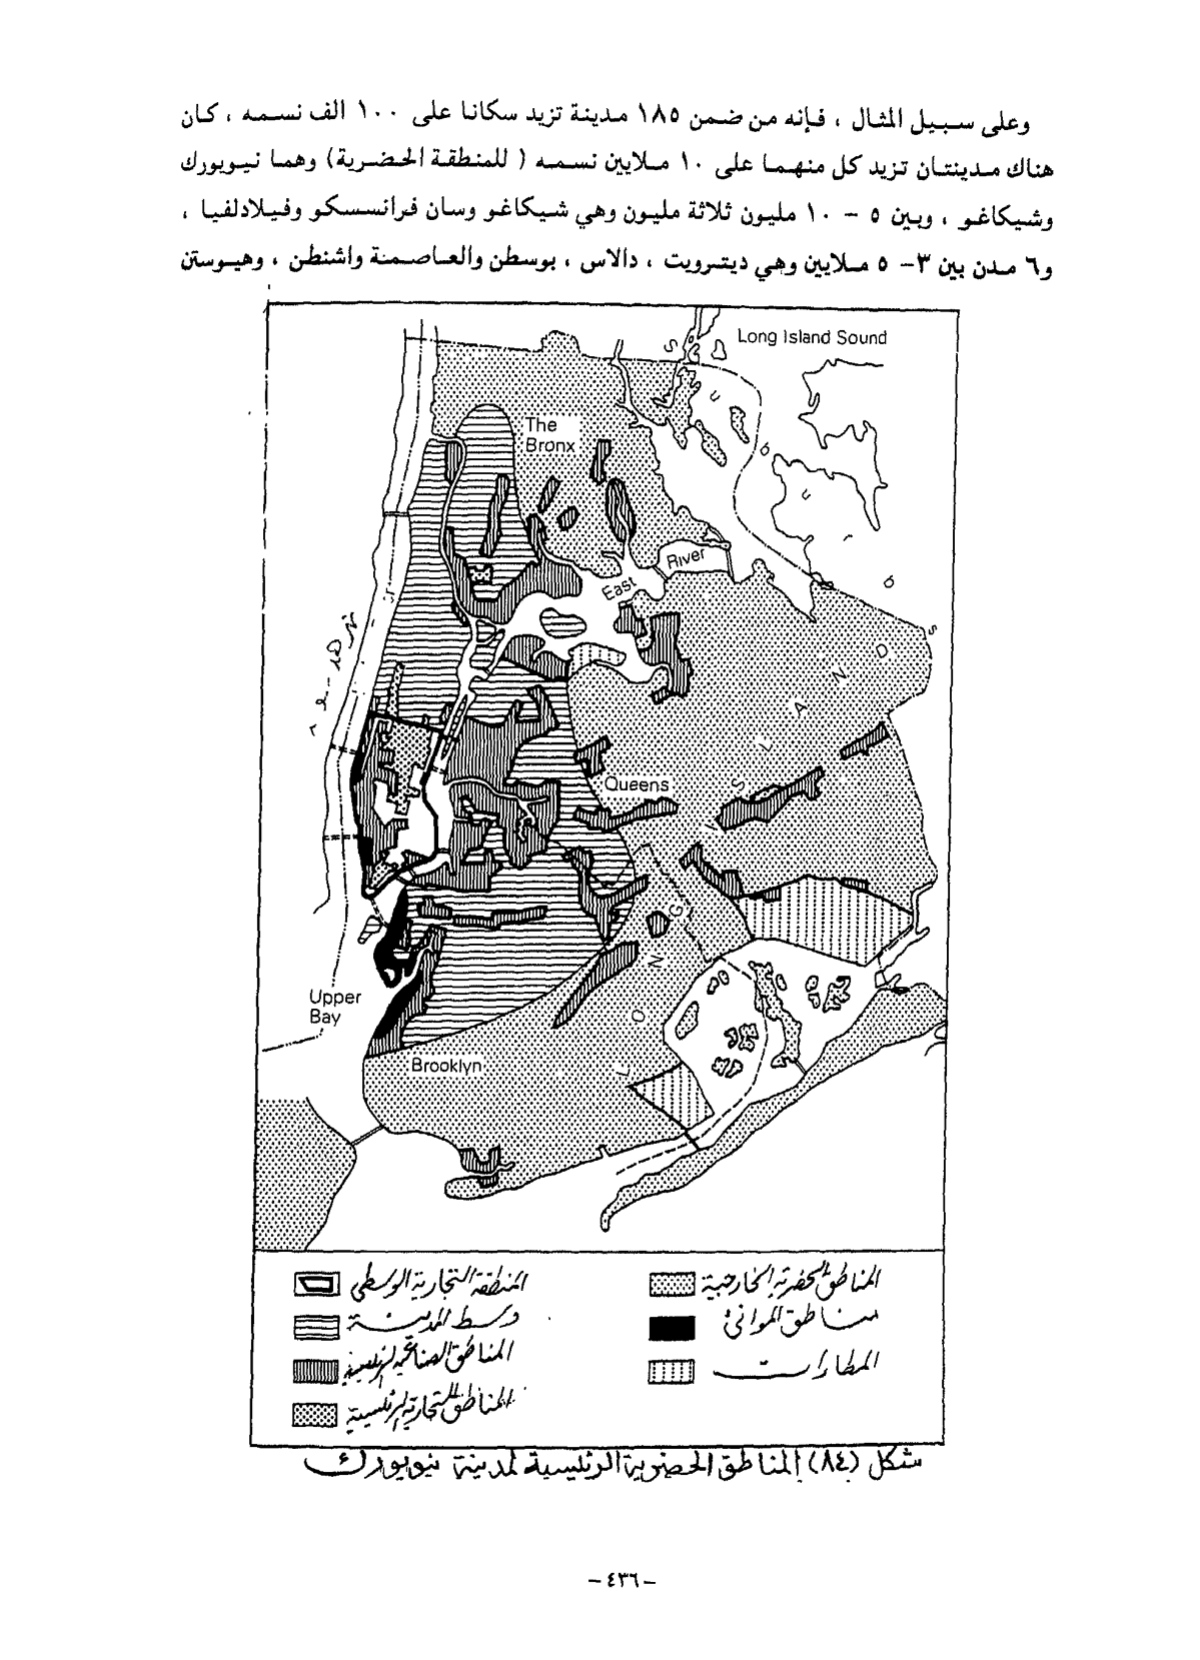 وعلى سبيل المثال ، فإنه من ضمن ١٨٥ مدينة تزيد سكانا على ١٠٠ الف نسمه ، كان
هناك مدينتان تزيد كل منهما على ١٠ ملايين نسمه ( للمنطقة الحضرية) وهما نيويورك
وشيكاغو ، وبين ٥ – ١٠ مليون ثلاثة مليون وهي شيكاغو وسان فرانسسكو وفيلادلفيا ،
و٦ مدن بين ٣– ٥ ملايين وهي ديترويت ، دالاس ، بوسطن والعاصمنة واشنطن ، وهيوستن
Long Island Sound
The
Bronx
Suburbs
East River
نهر
LONG ISLAND
Queens
Upper
Bay
Brooklyn
المناطق الحضرية الخارجية
المنطقة التجارية الوسطى
مناطق الموانئ
وسط المدينة
المطارات
المناطق الصناعية الرئيسية
المناطق التجارية الرئيسية
شكل (٨٤) المناطق الحضرية الرئيسية لمدينة نيويورك
– ٤٣٦ –